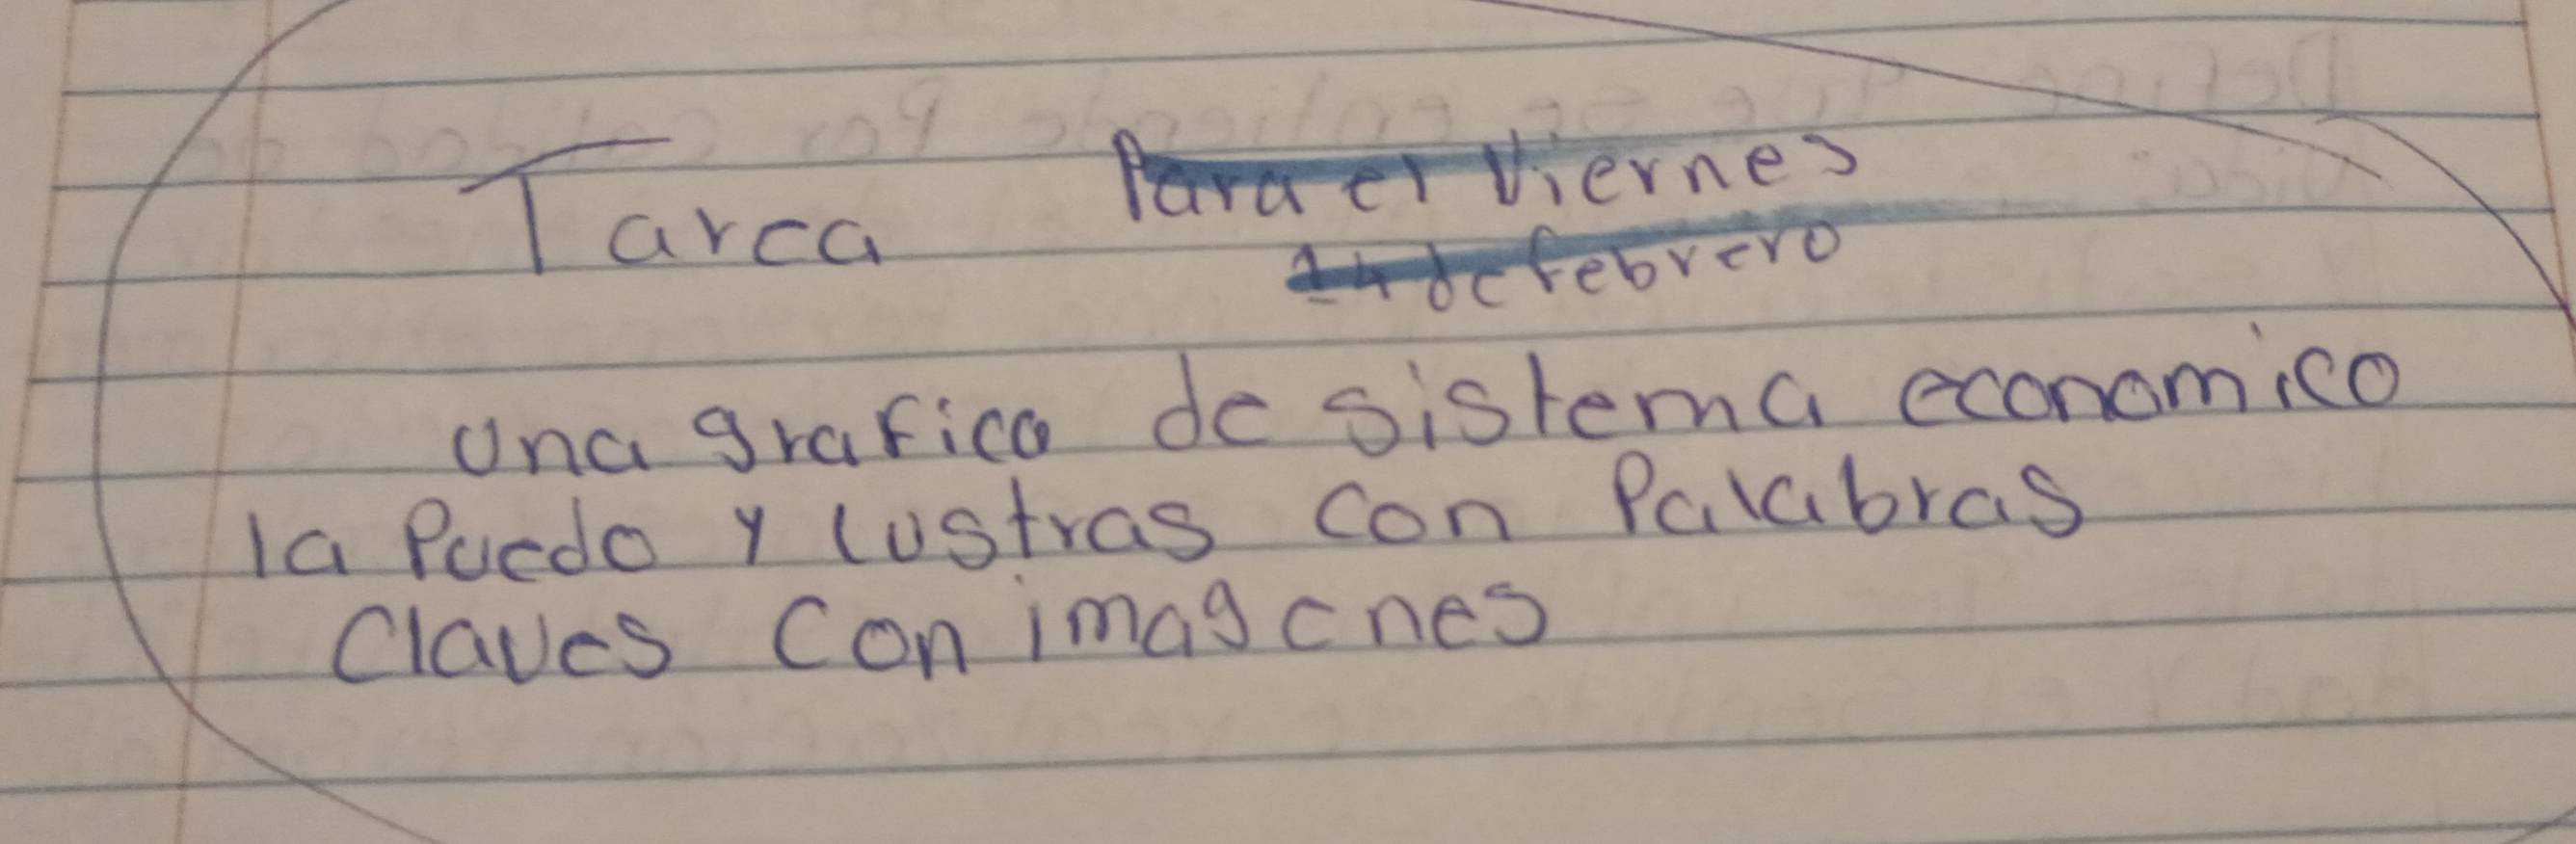 Tarea
Para el Viernes
14 de febrero
una grafica de sistema economico
la Puedo y lustras con Palabras
Claves con imagenes